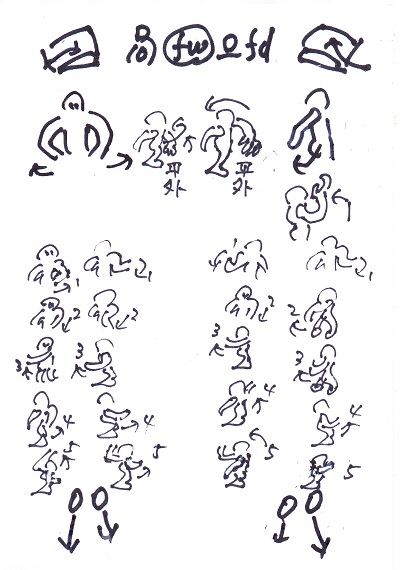 fw fd
平 平
外 外
1 1 1 1
2 2 2 2
3 3 3 3
4 4 4 4
5 5 5 5